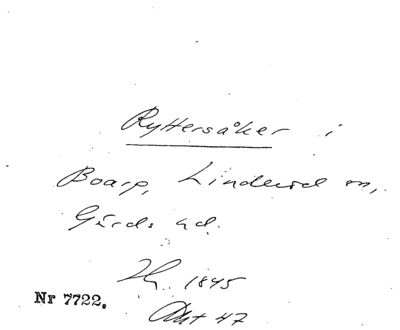 Ryttersåker i
Boarp, Linderöd sn,
Gärds hd.
1845
Nr 7722.
Akt 47